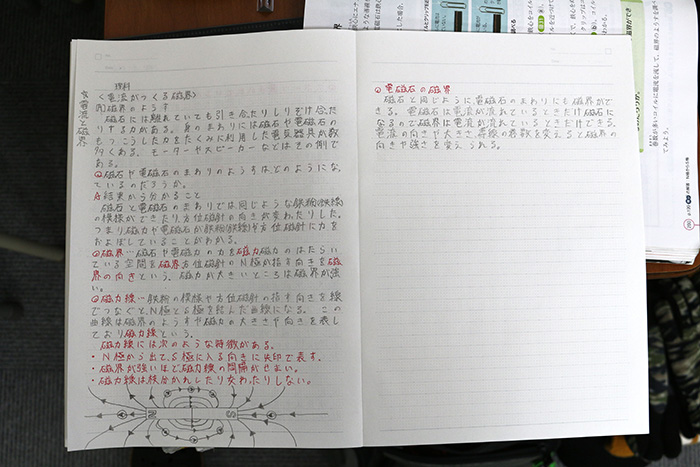 理科
☆電流と磁界
〈電流がつくる磁界〉
磁界のようす
磁石には離れていても引き合たりしりぞけ合た
りする力がある。身のまわりには磁石や電磁石の
もつこうした力をたくみに利用した電気器具が数
多くある。モーターやスピーカーなどはその例で
ある。
磁石や電磁石のまわりのようすはどのようになっ
ているのだろうか。
結果から分かること
磁石と電磁石のまわりでは同じような鉄粉(鉄線)
の模様ができたり方位磁針の向きが変わたりした。
つまり磁力や電磁石が鉄粉(鉄線)や方位磁針に力を
およぼしていることがわかる。
磁界…磁石や電磁力の力を磁力磁力のはたらい
ている空間を磁界方位磁針のN極が指す向きを磁
界の向きという。磁力が大きいところは磁界が強
い。
磁力線…鉄粉の模様や方位磁針の指す向きを線
でつなぐと、N極とS極を結んだ曲線になる。この
曲線は磁界のようすや磁力の大きさや向きを表し
ており磁力線という。
磁力線には次のような特徴がある。
・N極から出て、S極に入る向きに矢印で表す。
・磁界が強いほど磁力線の間隔がせまい。
・磁力線は枝分かれしたり交わったりしない。
N S
電磁石の磁界
磁石と同じように、電磁石のまわりにも磁界がで
きる。電磁石は電流が流れているときだけ磁石に
なるので磁界は電流が流れているときだけできる。
電流の向きや大きさ導線の巻数を変えると磁界の
向きや強さを変えられる。